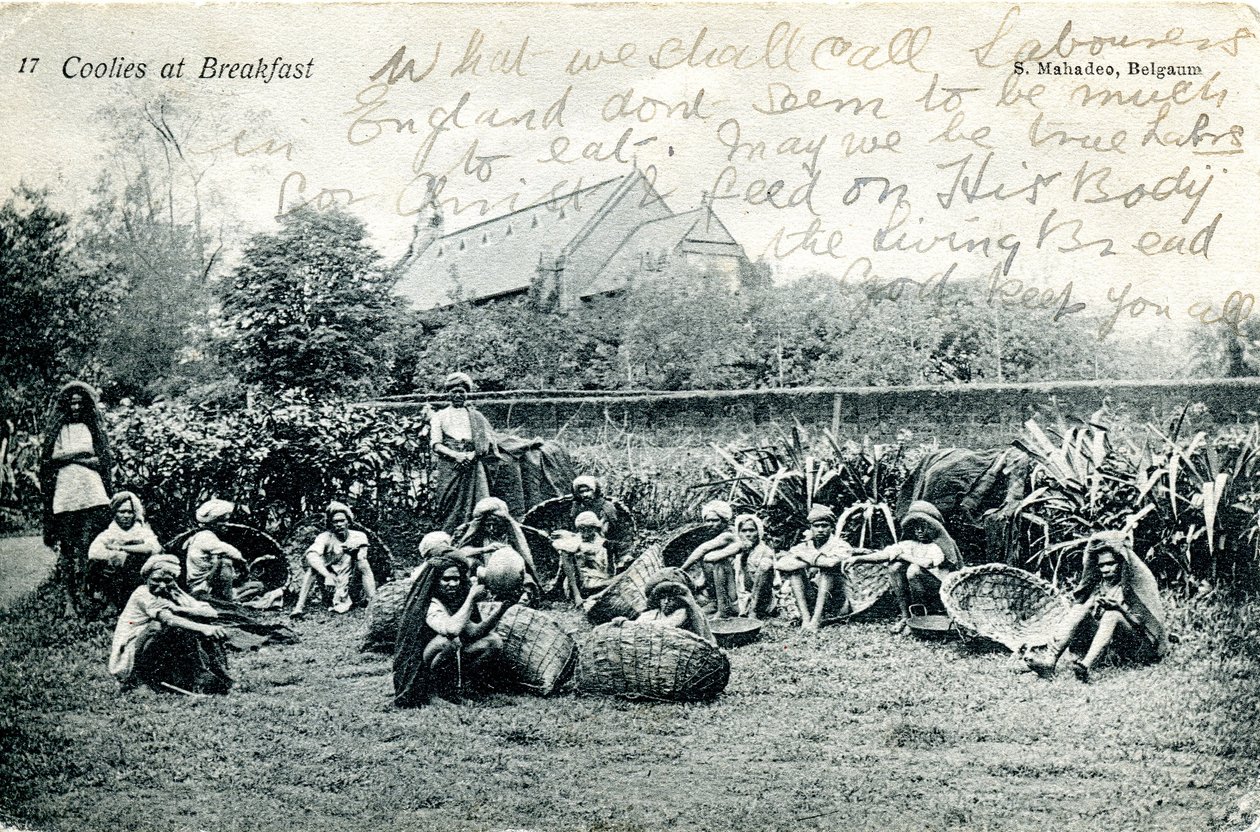 17 Coolies at Breakfast
S. Mahadeo, Belgaum
What we shall call Labourers
in England dont seem to be much
to eat. May we be true Labrs
for Christ & feed on His Body
the Living Bread
God keep you all